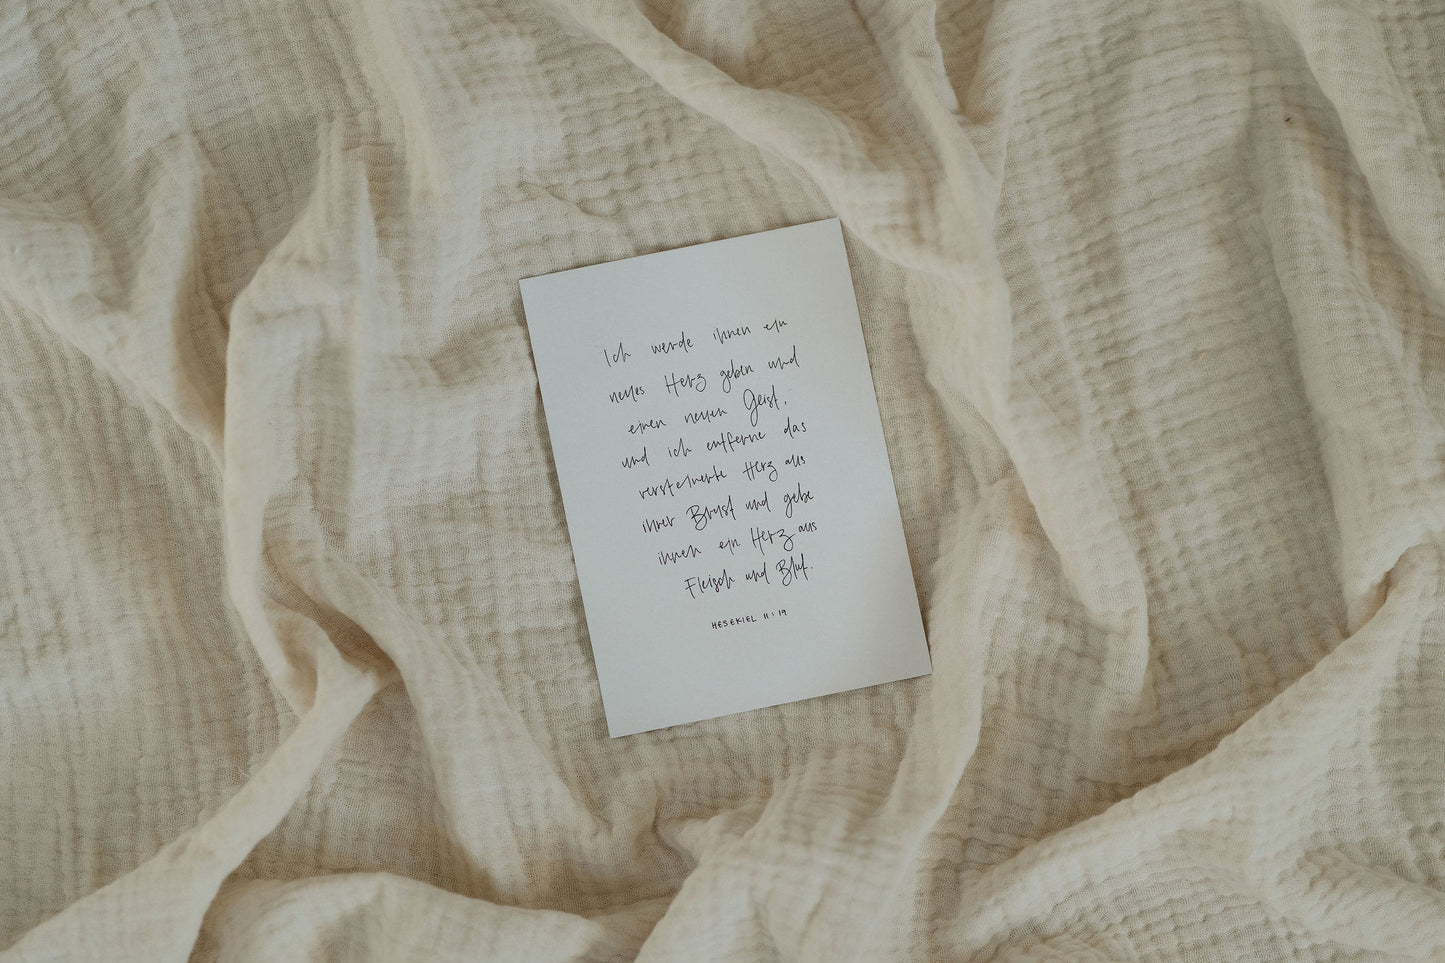 Ich werde ihnen ein
neues Herz geben und
einen neuen Geist,
und ich entferne das
versteinerte Herz aus
ihrer Brust und gebe
ihnen ein Herz aus
Fleisch und Blut.
HESEKIEL 11:19